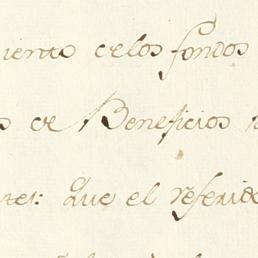 iento delos fondos
s de Beneficios
res: Que el referid